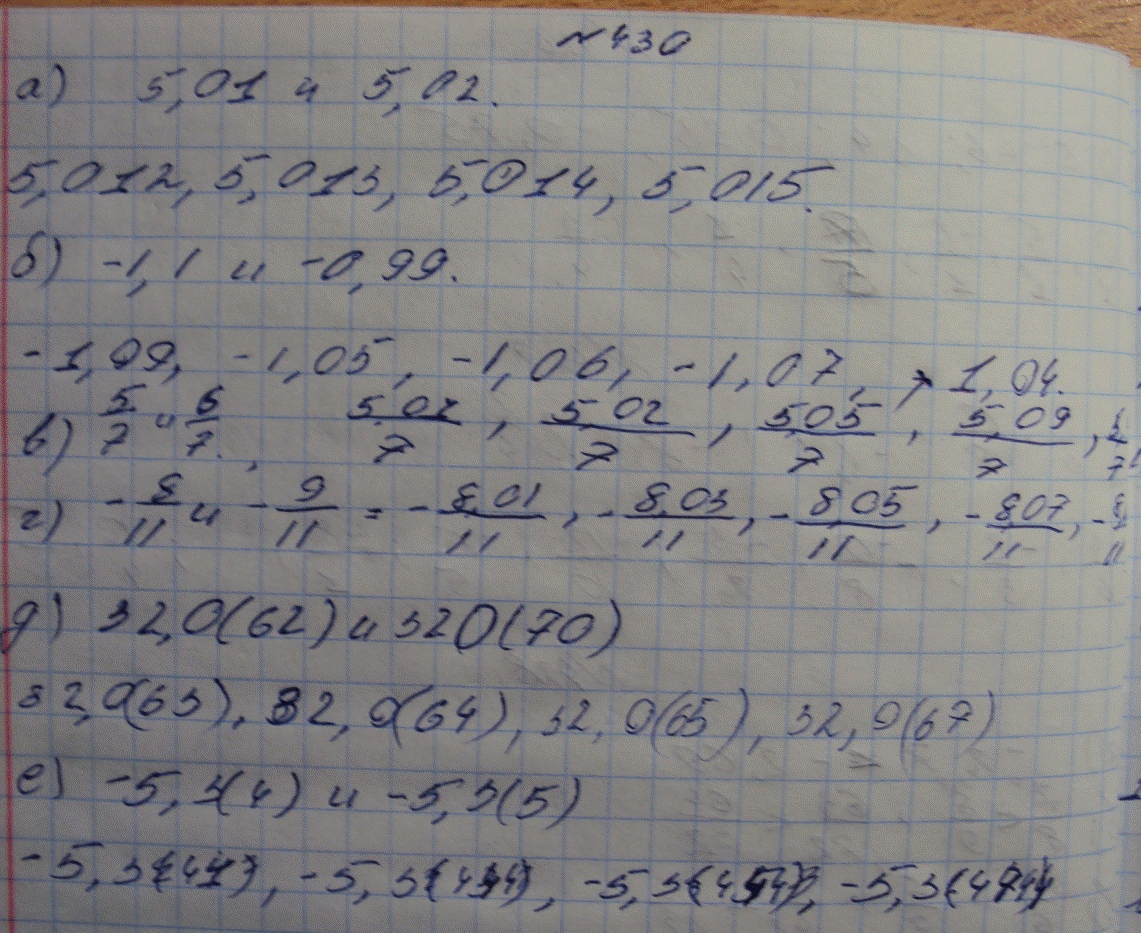 №430
а) 5,01 и 5,02.
5,012, 5,013, 5,014, 5,015.
б) -1,1 и -0,99.
-1,09, -1,05, -1,06, -1,07, -1,04.
в) 5/7 и 6/7. , 5,01/7, 5,02/7, 5,05/7, 5,09/7,
г) -8/11 и -9/11 = -8,01/11, -8,03/11, -8,05/11, -8,07/11,
д) 32,0(62) и 32 0(70)
32,0(63), 32,0(64), 32,0(65), 32,0(67)
е) -5,3(4) и -5,3(5)
-5,3 , -5,3 , -5,3 , -5,3